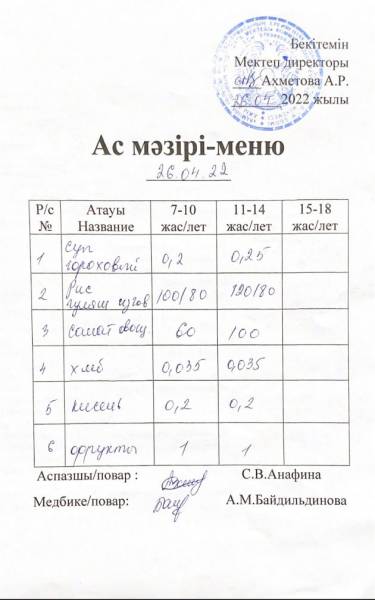 Бекітемін
Мектеп директоры
Ахметова А.Р.
26.04 2022 жылы
Ас мәзірі-меню
26.04.22
Р/с № Атауы Название 7-10 жас/лет 11-14 жас/лет 15-18 жас/лет
1 суп гороховый 0,2 0,25
2 Рис гуляш 100/80 120/80
3 салат овощ 60 100
4 хлеб 0,035 0,035
5 кисель 0,2 0,2
6 фрукты 1 1
Аспазшы/повар : С.В.Анафина
Медбике/повар: А.М.Байдильдинова